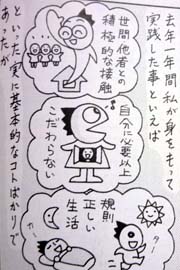 去年一年間私が身をもって
実践した事といえば
世間他者との
積極的な接触
自分に必要以上
こだわらない
規則
正しい
生活
といった実に基本的なﾆﾄばかりで
あったが